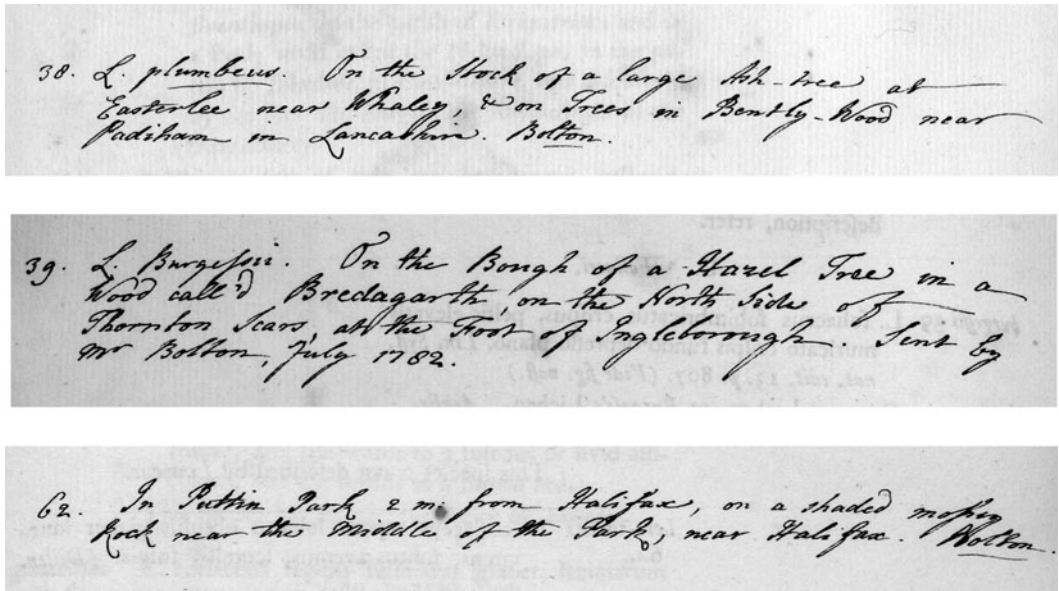 38. L. plumbeus. On the Stock of a large Ash-tree at
Easterlee near Whaley, & on Trees in Bently-Wood near
Padiham in Lancashire. Bolton.
39. L. Burgessii. On the Bough of a Hazel Tree in a
Wood call'd Bredagarth on the North Side of
Thornton Scars, at the Foot of Inglebrough. Sent by
Mr Bolton, July 1782.
62. In Park 2 m. from Halifax, on a shaded mossy
Rock near the Middle of the Park, near Halifax. Bolton.